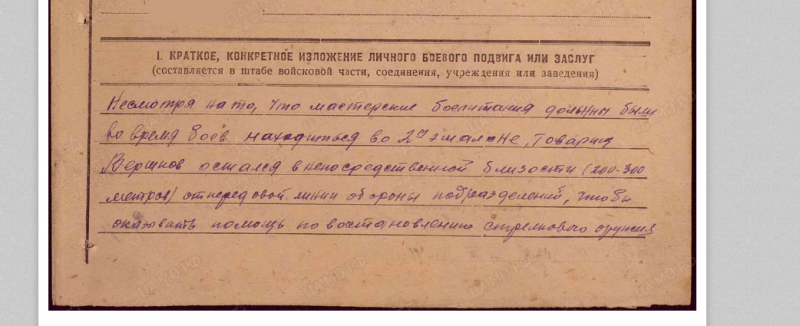 I. КРАТКОЕ, КОНКРЕТНОЕ ИЗЛОЖЕНИЕ ЛИЧНОГО БОЕВОГО ПОДВИГА ИЛИ ЗАСЛУГ
(составляется в штабе войсковой части, соединения, учреждения или заведения)
Несмотря на то, что мастерские боепитания должны были
во время боев находиться во 2ом эшалоне, товарищ
Вершков остался в непосредственной близости (200-300
метров) от передовой линии обороны подразделений, чтобы
оказывать помощь по востановлению стрелкового оружия